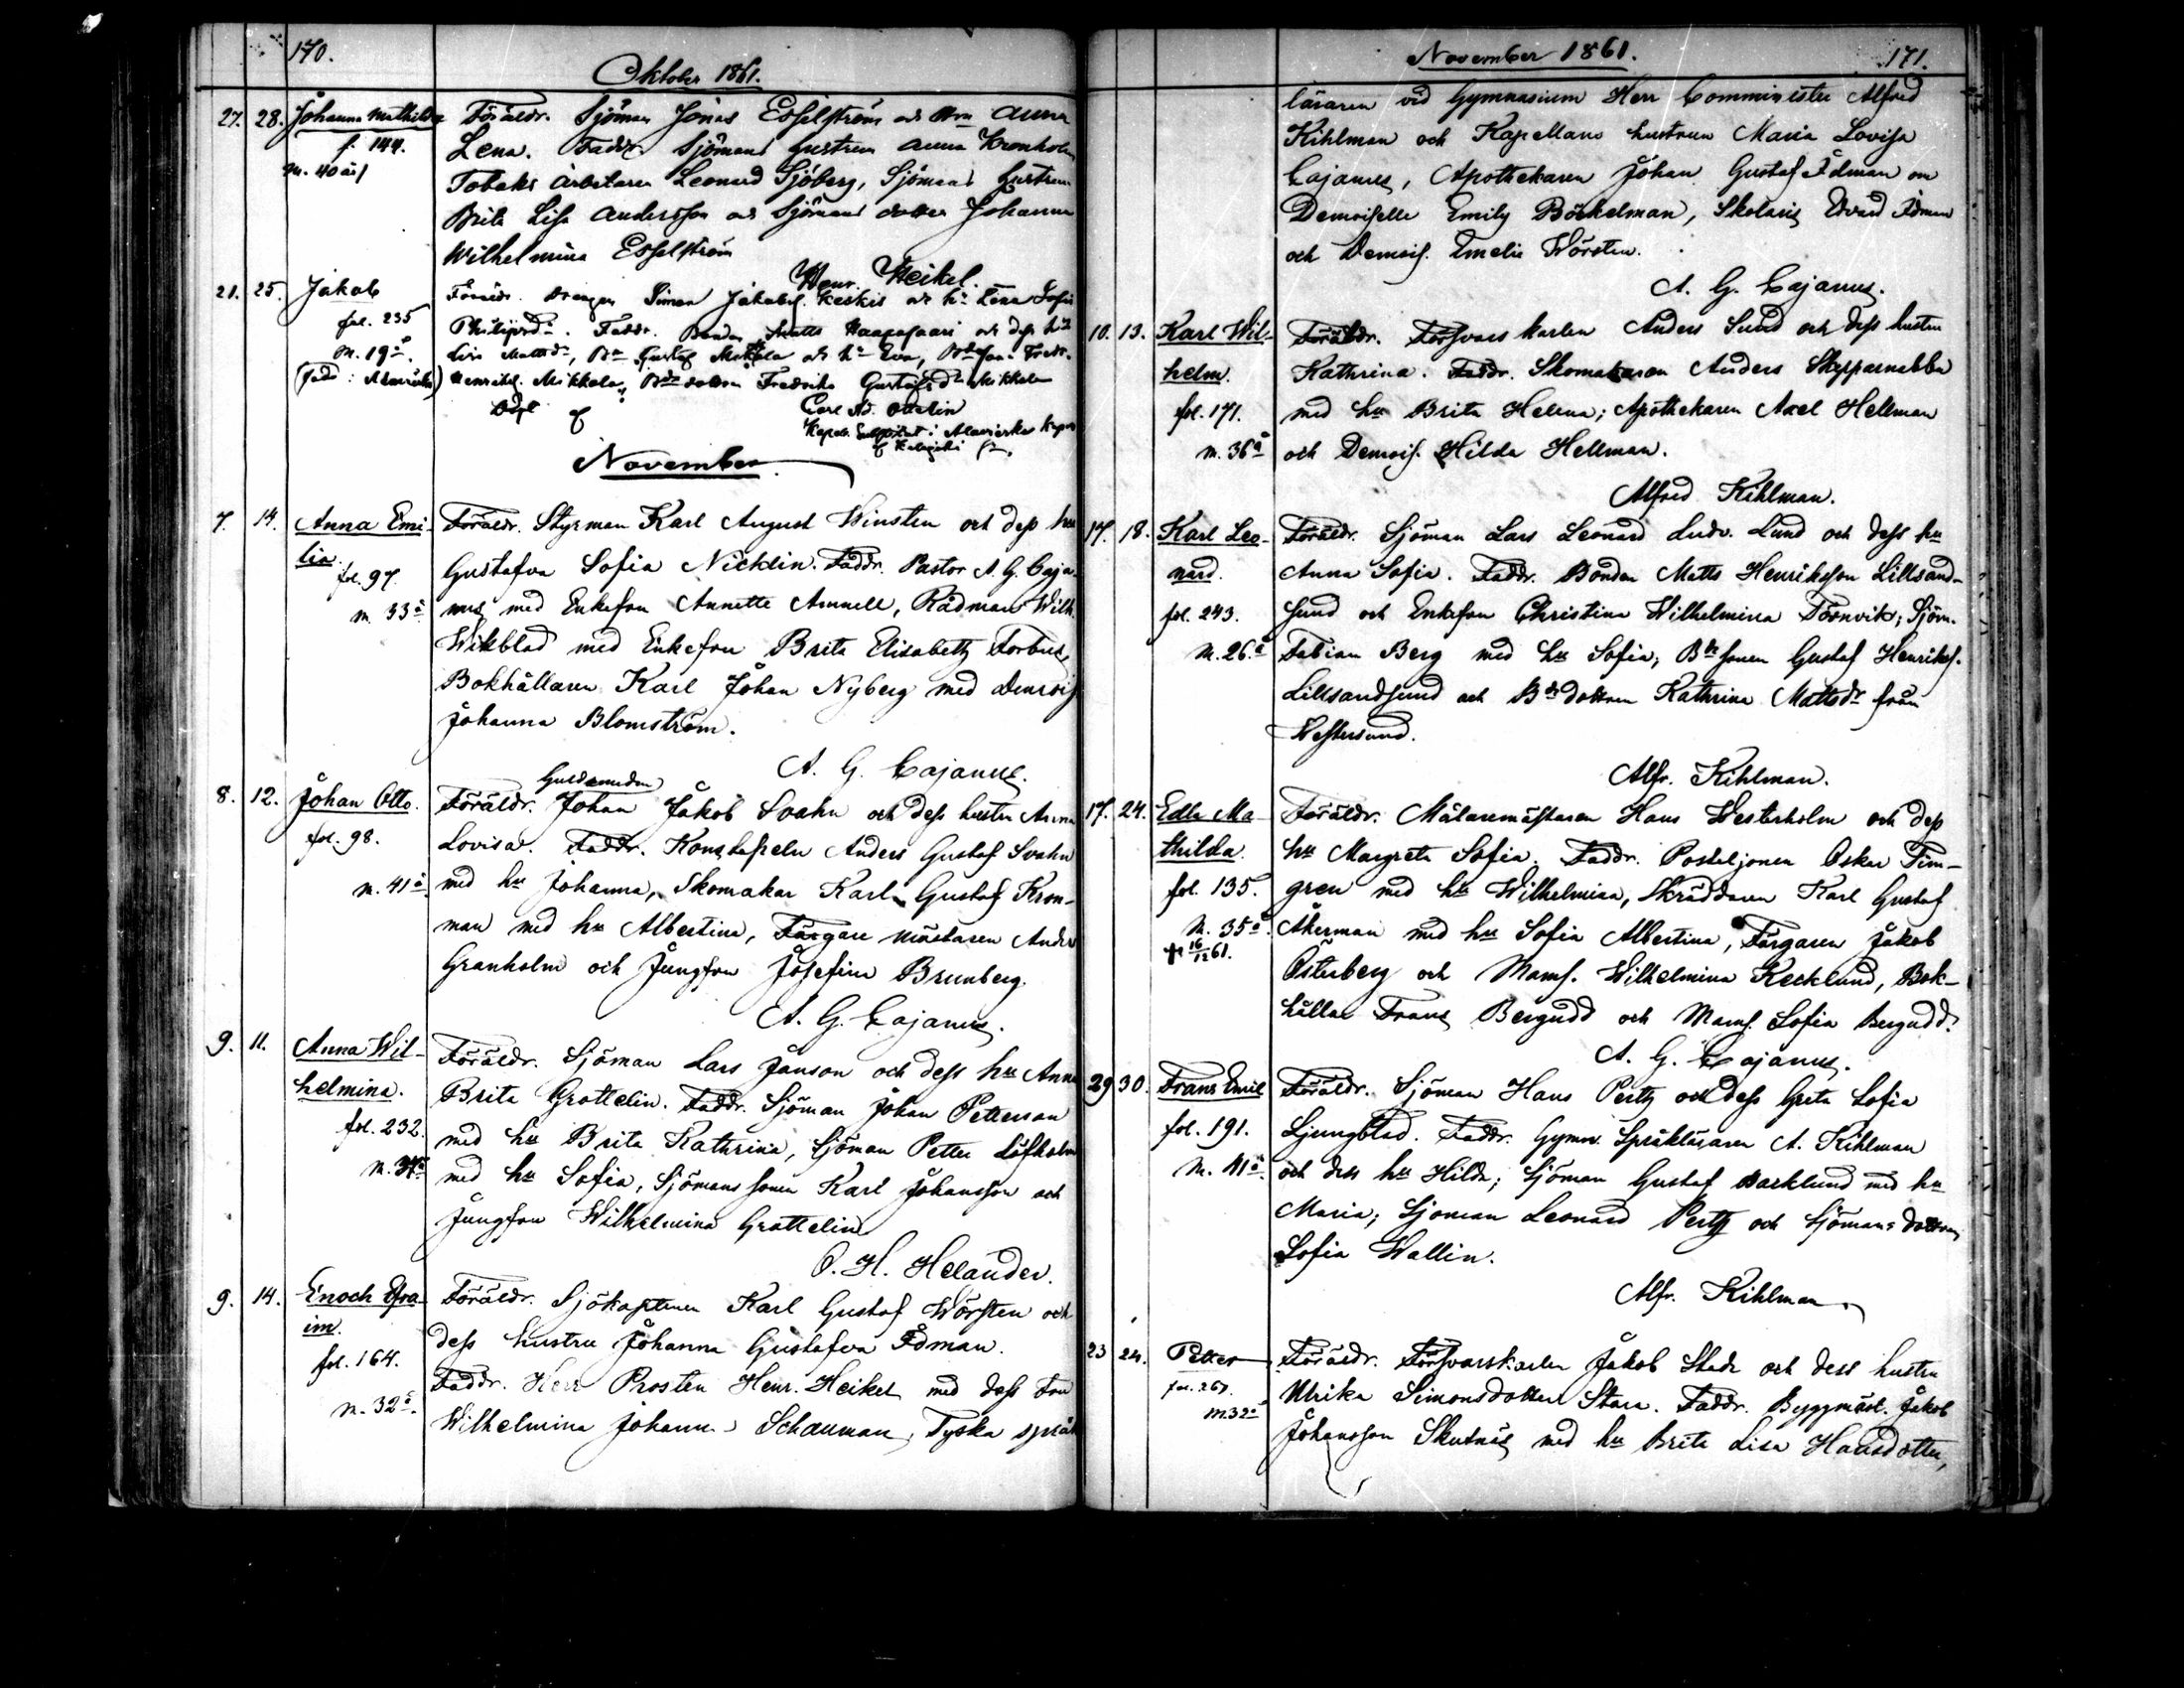 170.
Oktober 1861.
27. 28. Johanna Mathilda Föräldr. Sjöman Jonas Esselström och Anna
f. 144. Lena. Faddr. Sjömans hustrun Anna Kronholm
M. 40 år Tobaks arbetaren Leonard Sjöberg, Sjömans hustrun
Brita Lisa Andersson och Sjömans dotter Johanna
Wilhelmina Esselström
Henr. Heikel.
21. 25. Jakob Föräldr. Drengen Simon Jakobss. Keskis och hu Lena Sofia
fol. 235 Philipsdr. Faddr. Bonden Matts Haapasaari och dess hu
M. 19 å. Lisa Mattsdr, Bn Gustaf Mikkola och hu Eva, Fredr.
Henrikss. Mikkola, Bdedottern Fredrika Gustafsdr Mikkola
Carl Ad. Ottelin
November
7. 14. Anna Emi- Föräldr. Styrman Karl August Winsten och dess hu
lia. fol. 97. Gustafva Sofia Nicklin. Faddr. Pastor A. G. Caja-
m. 33 å nus med Enkefru Annette Armell, Rådman Wilh.
Wikblad med Enkefru Brita Elisabeth Forbus,
Bokhållaren Karl Johan Nyberg med Demois.
Johanna Blomström.
A. G. Cajanus.
Guldsmeden
8. 12. Johan Otto. Föräldr. Johan Jakob Svahn och dess hustru Anna
fol. 98. Lovisa. Faddr. Konstapeln Anders Gustaf Svahn
m. 41 å med hu Johanna, Skomakar Karl Gustaf Kron-
man med hu Albertina, Färgare mästaren Anders
Granholm och Jungfru Josefina Brunberg.
A. G. Cajanus.
9. 11. Anna Wil- Föräldr. Sjöman Lars Janson och dess hu Anna
helmina. Brita Grottelin. Faddr. Sjöman Johan Petterson
fol. 232. med hu Brita Kathrina, Sjöman Petter Löfholm
med hu Sofia, Sjömans sonen Karl Johansson och
Jungfru Wilhelmina Grottelin
O. H. Helander.
9. 14. Enoch Efra- Föräldr. Sjökaptenen Karl Gustaf Wörsten och
im. dess hustru Johanna Gustafva Idman.
fol. 164. Faddr. Herr Prosten Henr. Heikel med dess Fru
m. 32 å. Wilhelmina Johanna Schauman, Tyska språk
November 1861. 171.
läraren vid Gymnasium Herr Comminister Alfred
Kihlman och Kapellans hustrun Maria Lovisa
Cajanus, Apothekaren Johan Gustaf Idman
Demoiselle Emily Böckelman, Skolaris Edvard Idman
och Demois. Emelie Wörsten.
A. G. Cajanus.
10. 13. Karl Wil- Föräldr. Försvars karlen Anders Sund och dess hustru
helm. Kathrina. Faddr. Skomakaren Anders Skepparnabba
fol. 171. med hu Brita Helena; Apothekaren Axel Hellman
m. 36 å och Demois. Hilda Hellman.
Alfred Kihlman.
17. 18. Karl Leo- Föräldr. Sjöman Lars Leonard Ludv. Lund och dess hu
nard. Anna Sofia. Faddr. Bonden Matts Henriksson Lillsand-
fol. 243. sund och Enkefru Christina Wilhelmina Törnvik; Sjöm.
M. 26. å Fabian Berg med hu Sofia, Bdesonen Gustaf Henrikss.
Lillsandsund och Bdedottren Kathrina Mattsdr från
Westersund.
Alfr. Kihlman.
17. 24. Edla Ma- Föräldr. Målaremästaren Hans Westerholm och dess
thilda. hu Margreta Sofia. Faddr. Posteljonen Oskar Tim-
fol. 135. gren med hu Wilhelmina, Skräddaren Karl Gustaf
M. 35 å. Åkerman med hu Sofia Albertina, Färgaren Jakob
† 16/12 61. Österberg och Mams. Wilhelmina Kecklund, Bok-
hållar Frans Bergudd och Mams. Sofia Bergudd.
A. G. Cajanus.
29 30. Frans Emil Föräldr. Sjöman Hans Pertz och dess Greta Sofia
fol. 191. Ljungblad. Faddr. Gymn. Språkläraren A. Kihlman
M. 41 å. och dess hu Hilda; Sjöman Gustaf Backlund med hu
Maria; Sjöman Leonard Pertz och Sjömans dottren
Sofia Wallin.
Alfr. Kihlman
23 24. Petter Föräldr. Försvarskarlen Jakob Stade och dess hustru
fol. 267. Ulrika Simonsdotter Stara. Faddr. Byggmäst. Jakob
M. 32 å Johansson Skutnäs med hu Brita Lisa Hansdotter,